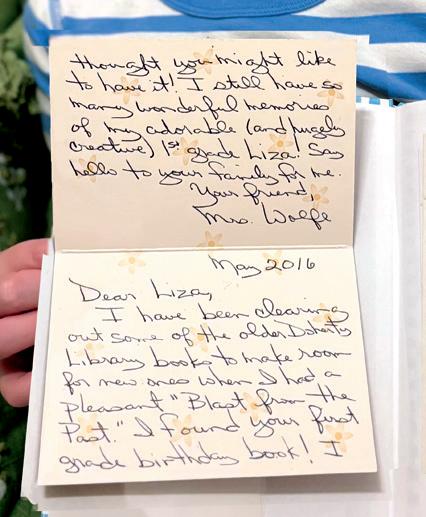 May 2016
Dear Liza,
I have been clearing
out some of the older Doherty
Library books to make room
for new ones when I had a
pleasant "Blast from the
Past." I found your first
grade birthday book! I
thought you might like
to have it! I still have so
many wonderful memories
of my adorable (and hugely
creative) 1st grade Liza! Say
hello to your family for me.
Your friend,
Mrs. Wolfe